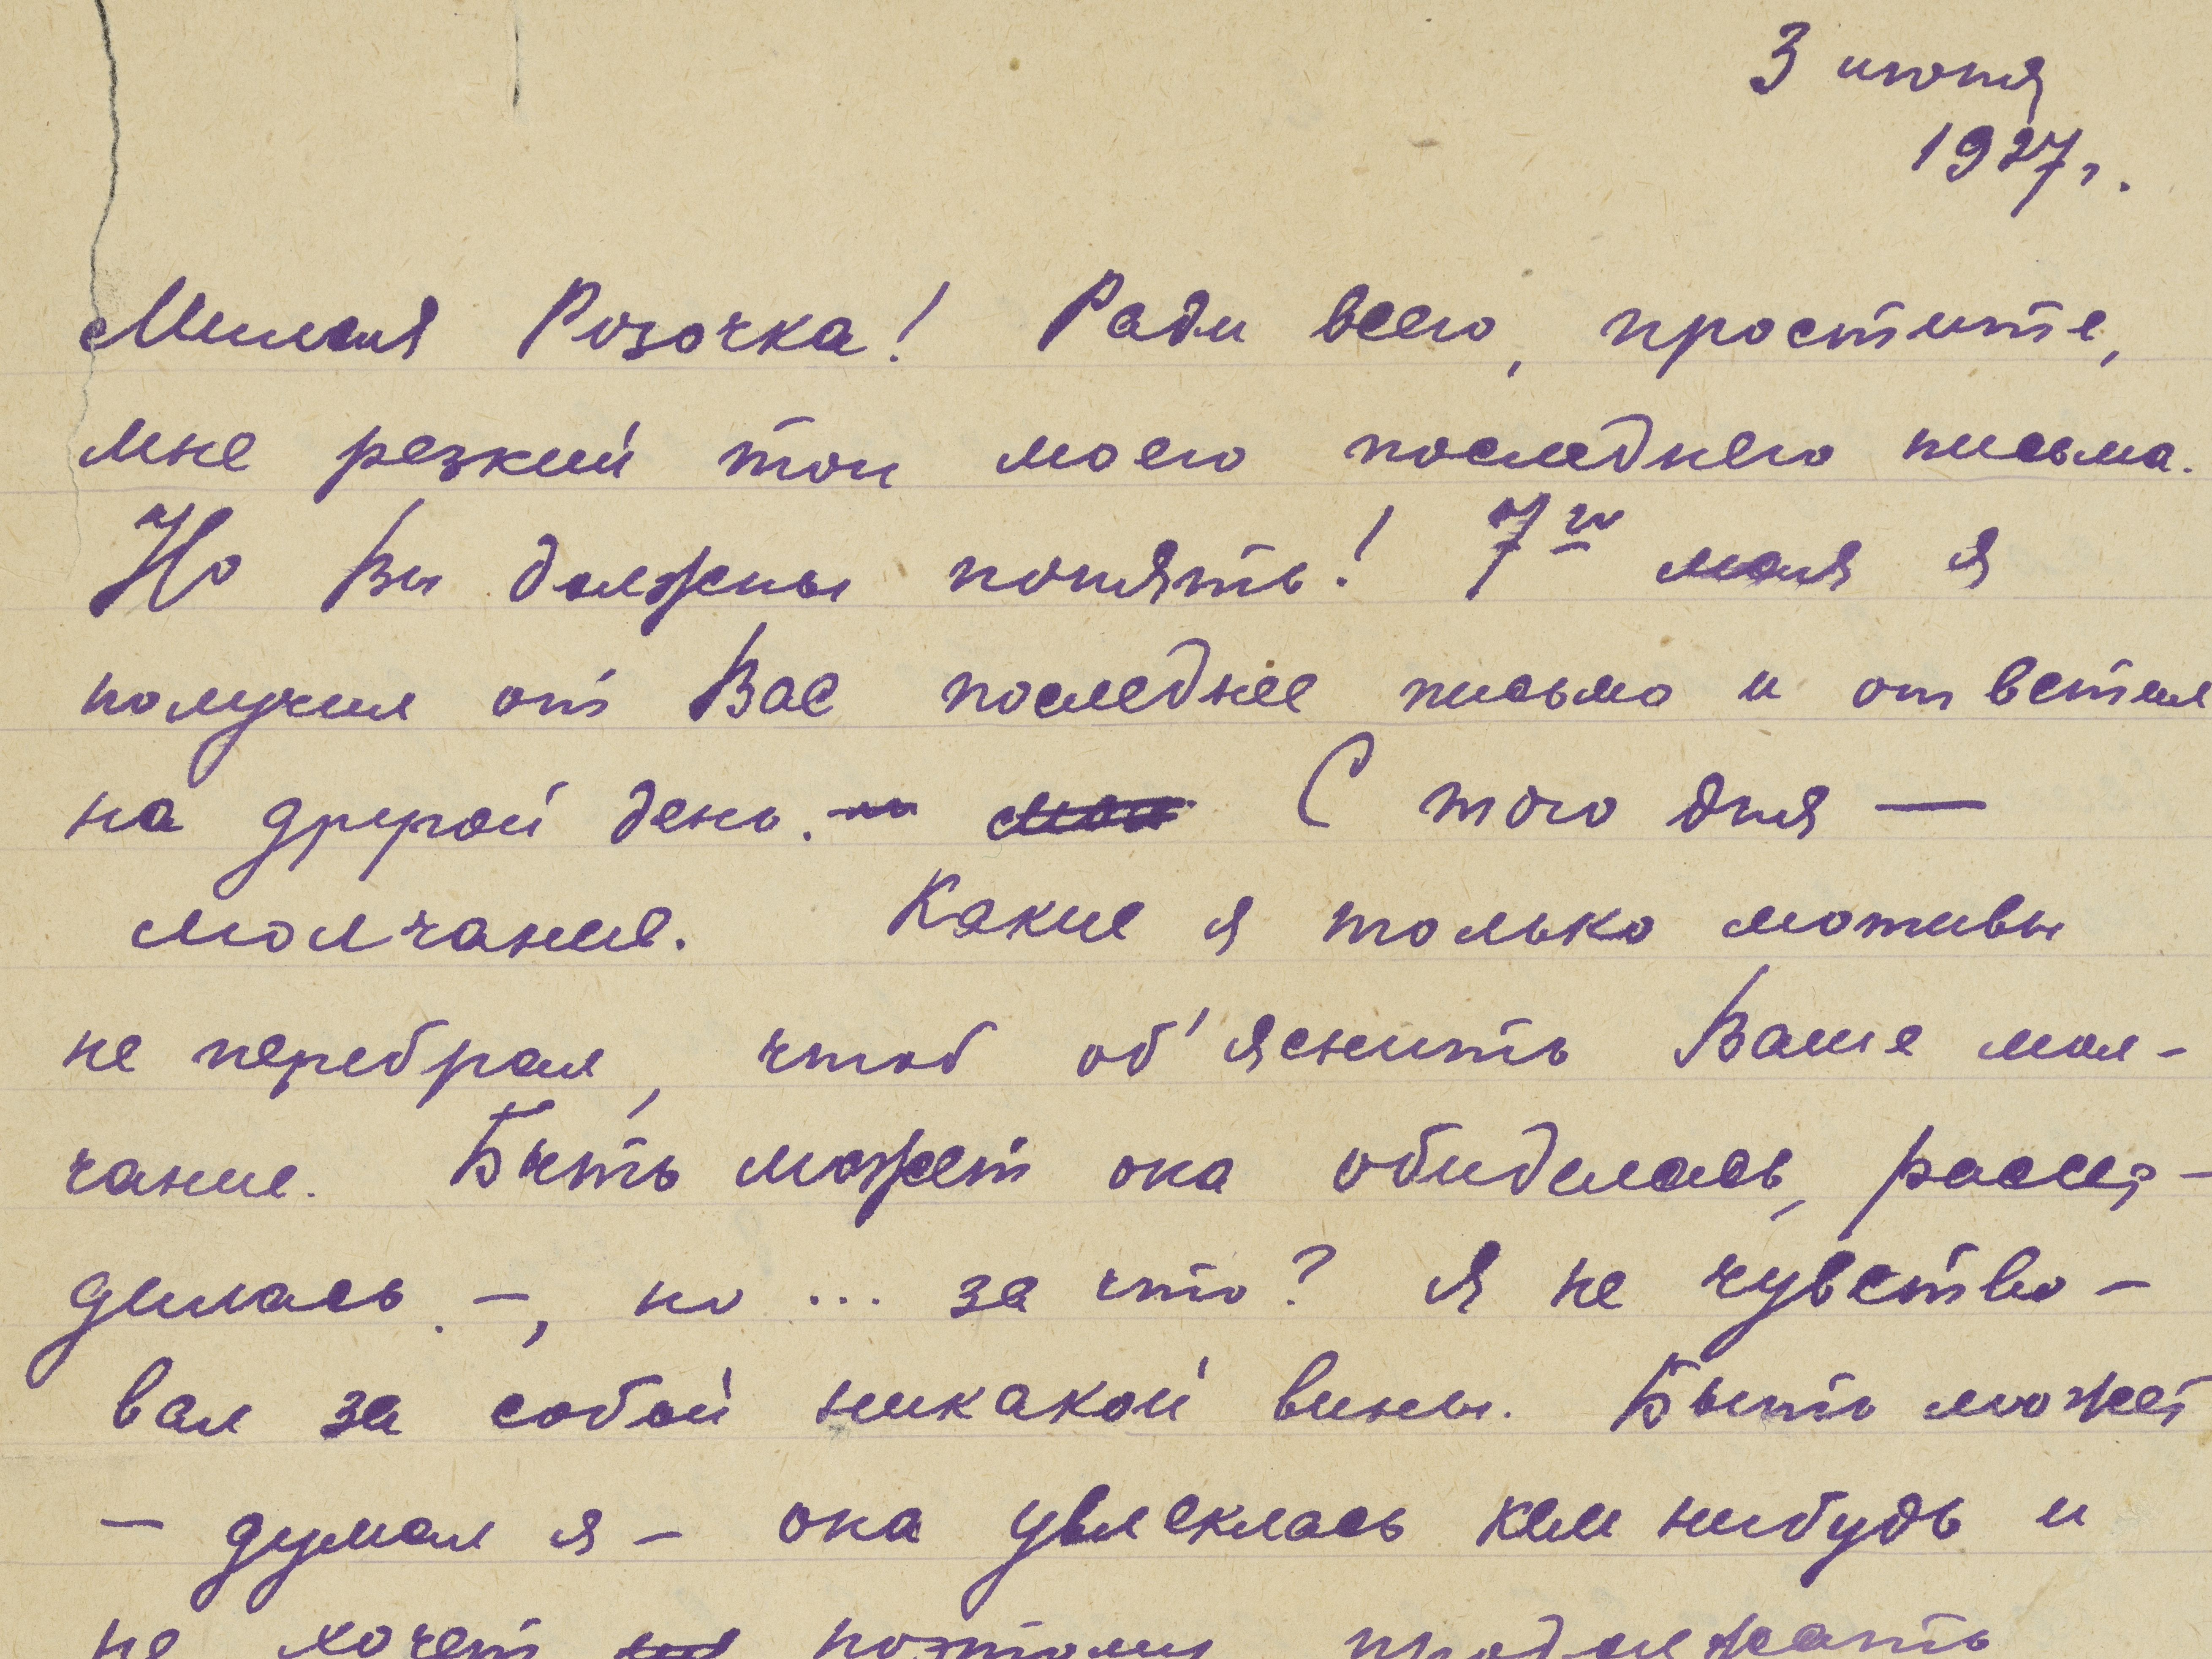 3 июня
1927 г.
Милая Розочка! Ради всего, простите,
мне резкий тон моего последнего письма.
Но Вы должны понять! 7го мая я
получил от Вас последнее письмо и ответил
на другой день. С того дня —
молчание. Какие я только мотивы
не перебрал, чтоб об'яснить Ваше мол-
чание. Быть может она обиделась, рассер-
дилась -, но ... за что? Я не чувство-
вал за собой никакой вины. Быть может
- думал я - она увлеклась кем нибудь и
не хочет поэтому продолжать